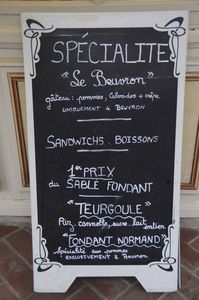 SPÉCIALITE
"Le Beuvron"
gâteau : pommes, Calvados + crêpe
UNIQUEMENT à BEUVRON
SANDWICHS . BOISSONS
1er PRIX
du SABLÉ FONDANT
"TEURGOULE"
Riz, cannelle, sucre, lait entier
"FONDANT NORMAND"
Spécialité aux pommes
EXCLUSIVEMENT à Beuvron